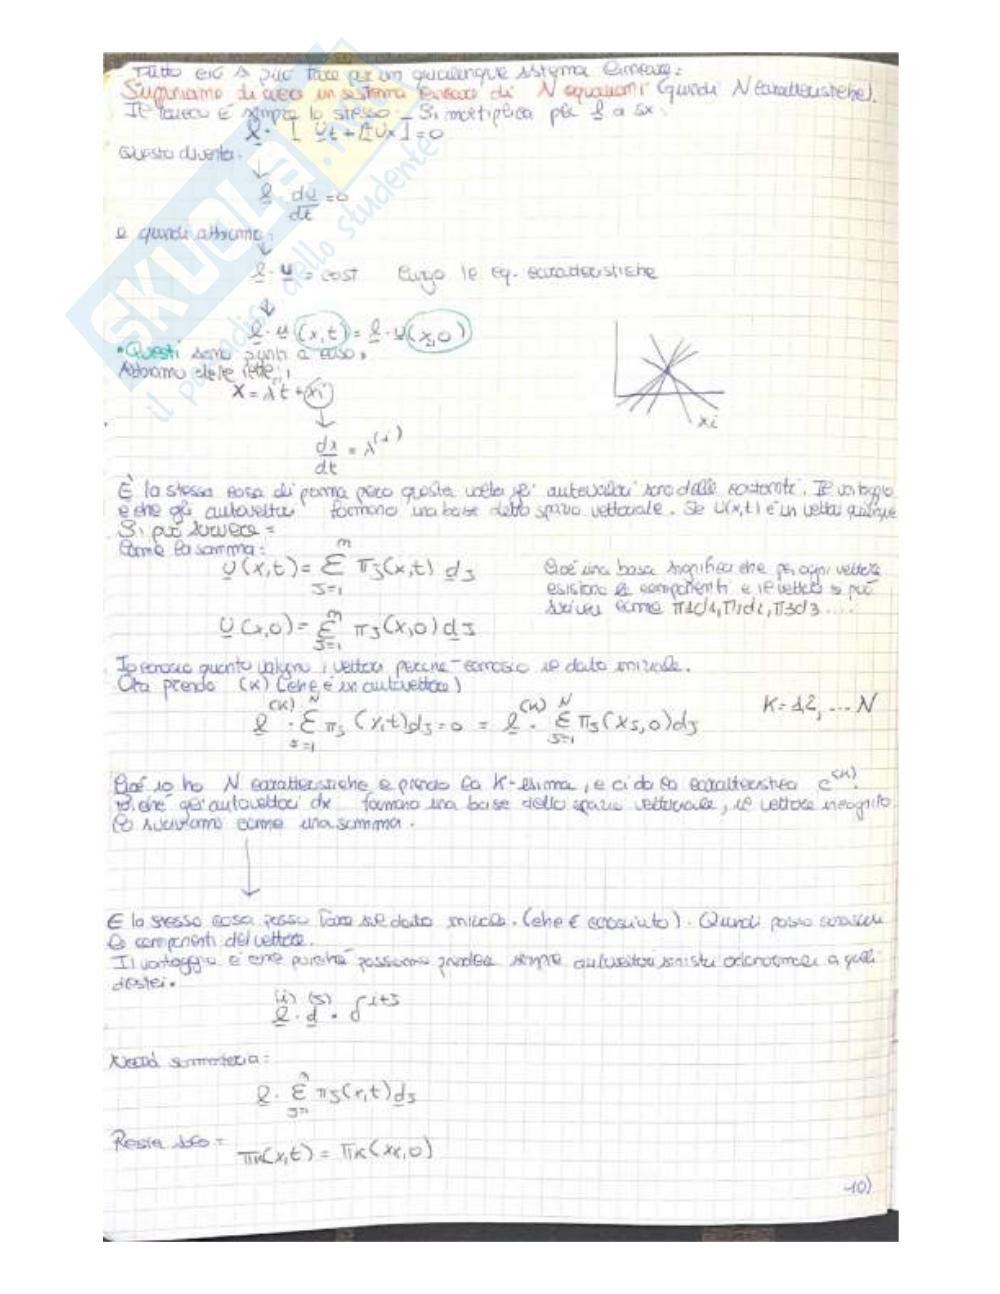 Tutto ciò si può fare per un qualunque sistema lineare:
Supponiamo di avere un sistema lineare di N equazioni (quindi N caratteristiche).
Il lavoro è sempre lo stesso. Si moltiplica per l a sx.
l · [ Ut + A Ux ] = 0
Questo diventa:
l · du/dt = 0
e quindi abbiamo:
l · u = cost lungo le eq. caratteristiche
l · u (x,t) = l · u (x,0)
• Questi sono punti a caso.
Abbiamo delle rette:
x = λⁱt + xi
xi
dx/dt = λ⁽ⁱ⁾
È la stessa cosa di prima però questa volta gli autovalori sono delle costanti. Il vantaggio
è che gli autovettori formano una base dello spazio vettoriale. Se U(x,t) è un vettore qualunque
Si può scrivere =
Come la somma:
U(x,t) = Σ π5(x,t) d5
m
5=1
Cioè una base significa che per ogni vettore
esistono le componenti e il vettore si può
scrivere come π1d1, π2d2, π3d3 ....
U(x,0) = Σ π5(x,0) d5
m
5=1
Io conosco quanto valgono i vettori perché conosco il dato iniziale.
Ora prendo (K) (che è un autovettore)
l⁽ᴷ⁾ · Σ π5 (x,t) d5 = 0 = l⁽ᴷ⁾ · Σ π5 (x5,0) d5 K = 1,2, ... N
N
5=1
N
5=1
Cioè io ho N caratteristiche e prendo la K-esima, e ci do la caratteristica c⁽ᴷ⁾.
Poiché gli autovettori dx formano una base dello spazio vettoriale, il vettore incognito
lo scriviamo come una somma.
E la stessa cosa posso fare sul dato iniziale. (che è conosciuto). Quindi posso conoscere
le componenti del vettore.
Il vantaggio è che poiché possiamo prendere sempre autovettori sinistri ortonormali a quelli
destri.
l⁽ⁱ⁾ · d⁽⁵⁾ · δ i+5
Nella sommatoria:
l · Σ π5(x,t) d5
n
5=1
Resta solo =
πK(x,t) = πK(xK,0)
10)
SKUOLA.net
il paradiso dello studente